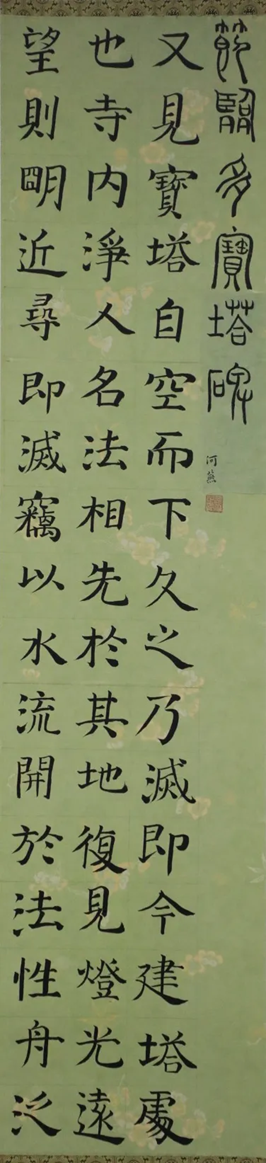 節臨多寶塔碑
又見寶塔自空而下久之乃滅即今建塔處
也寺内淨人名法相先於其地復見燈光遠
望則明近尋即滅竊以水流開於法性舟泛